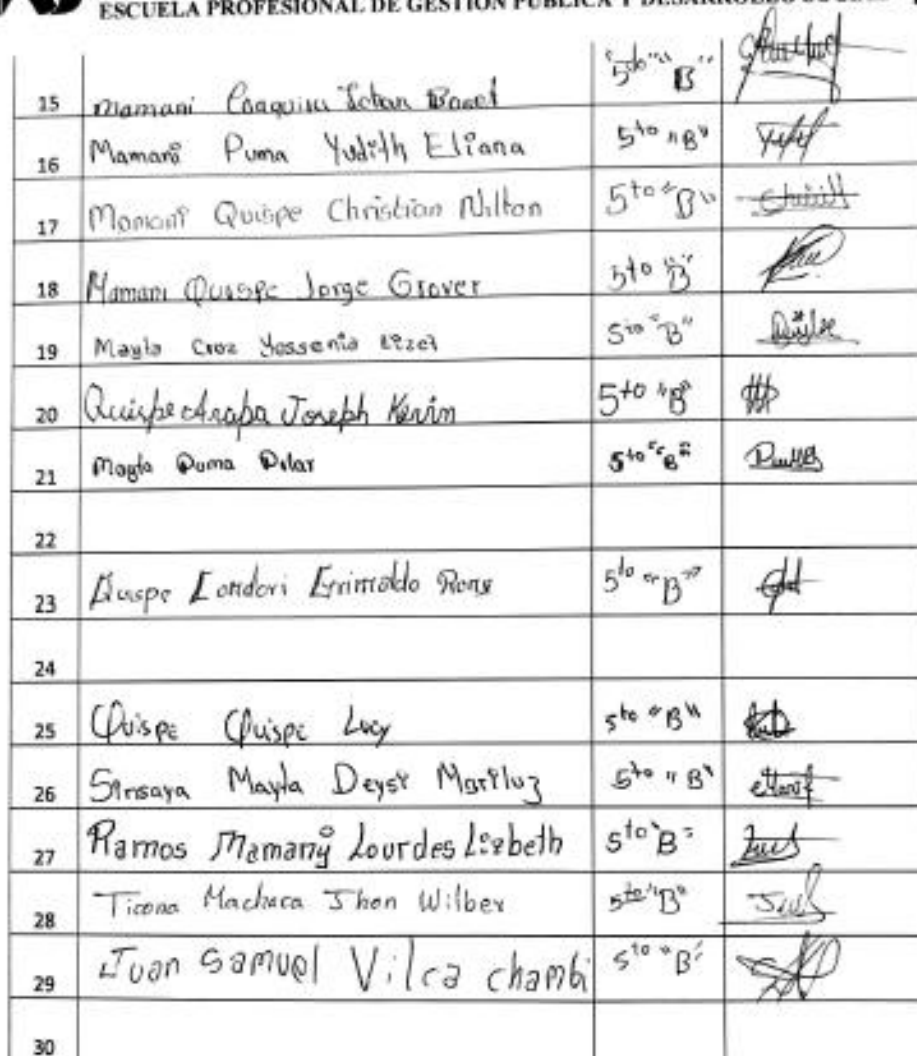 ESCUELA PROFESIONAL DE GESTIÓN PÚBLICA Y DESARROLLO SOCIAL
15 Mamani "5to" "B"
16 Mamani Puma Yudith Eliana 5to "B"
17 Mamani Quispe Christian Nilton 5to "B"
18 Mamani Quispe Jorge Grover 5to "B"
19 Mayta Cruz Yessenia Lizet 5to "B"
20 Quispe Arapa Joseph Kevin 5to "B"
21 Mayta Puma Pilar 5to "B"
22
23 Quispe Condori Grimaldo 5to "B"
24
25 Quispe Quispe Lucy 5to "B"
26 Sinsaya Mayta Deysi Mariluz 5to "B"
27 Ramos Mamani Lourdes Lizbeth 5to "B"
28 Ticona Machaca Jhon Wilber 5to "B"
29 Juan Samuel Vilca chambi 5to "B"
30